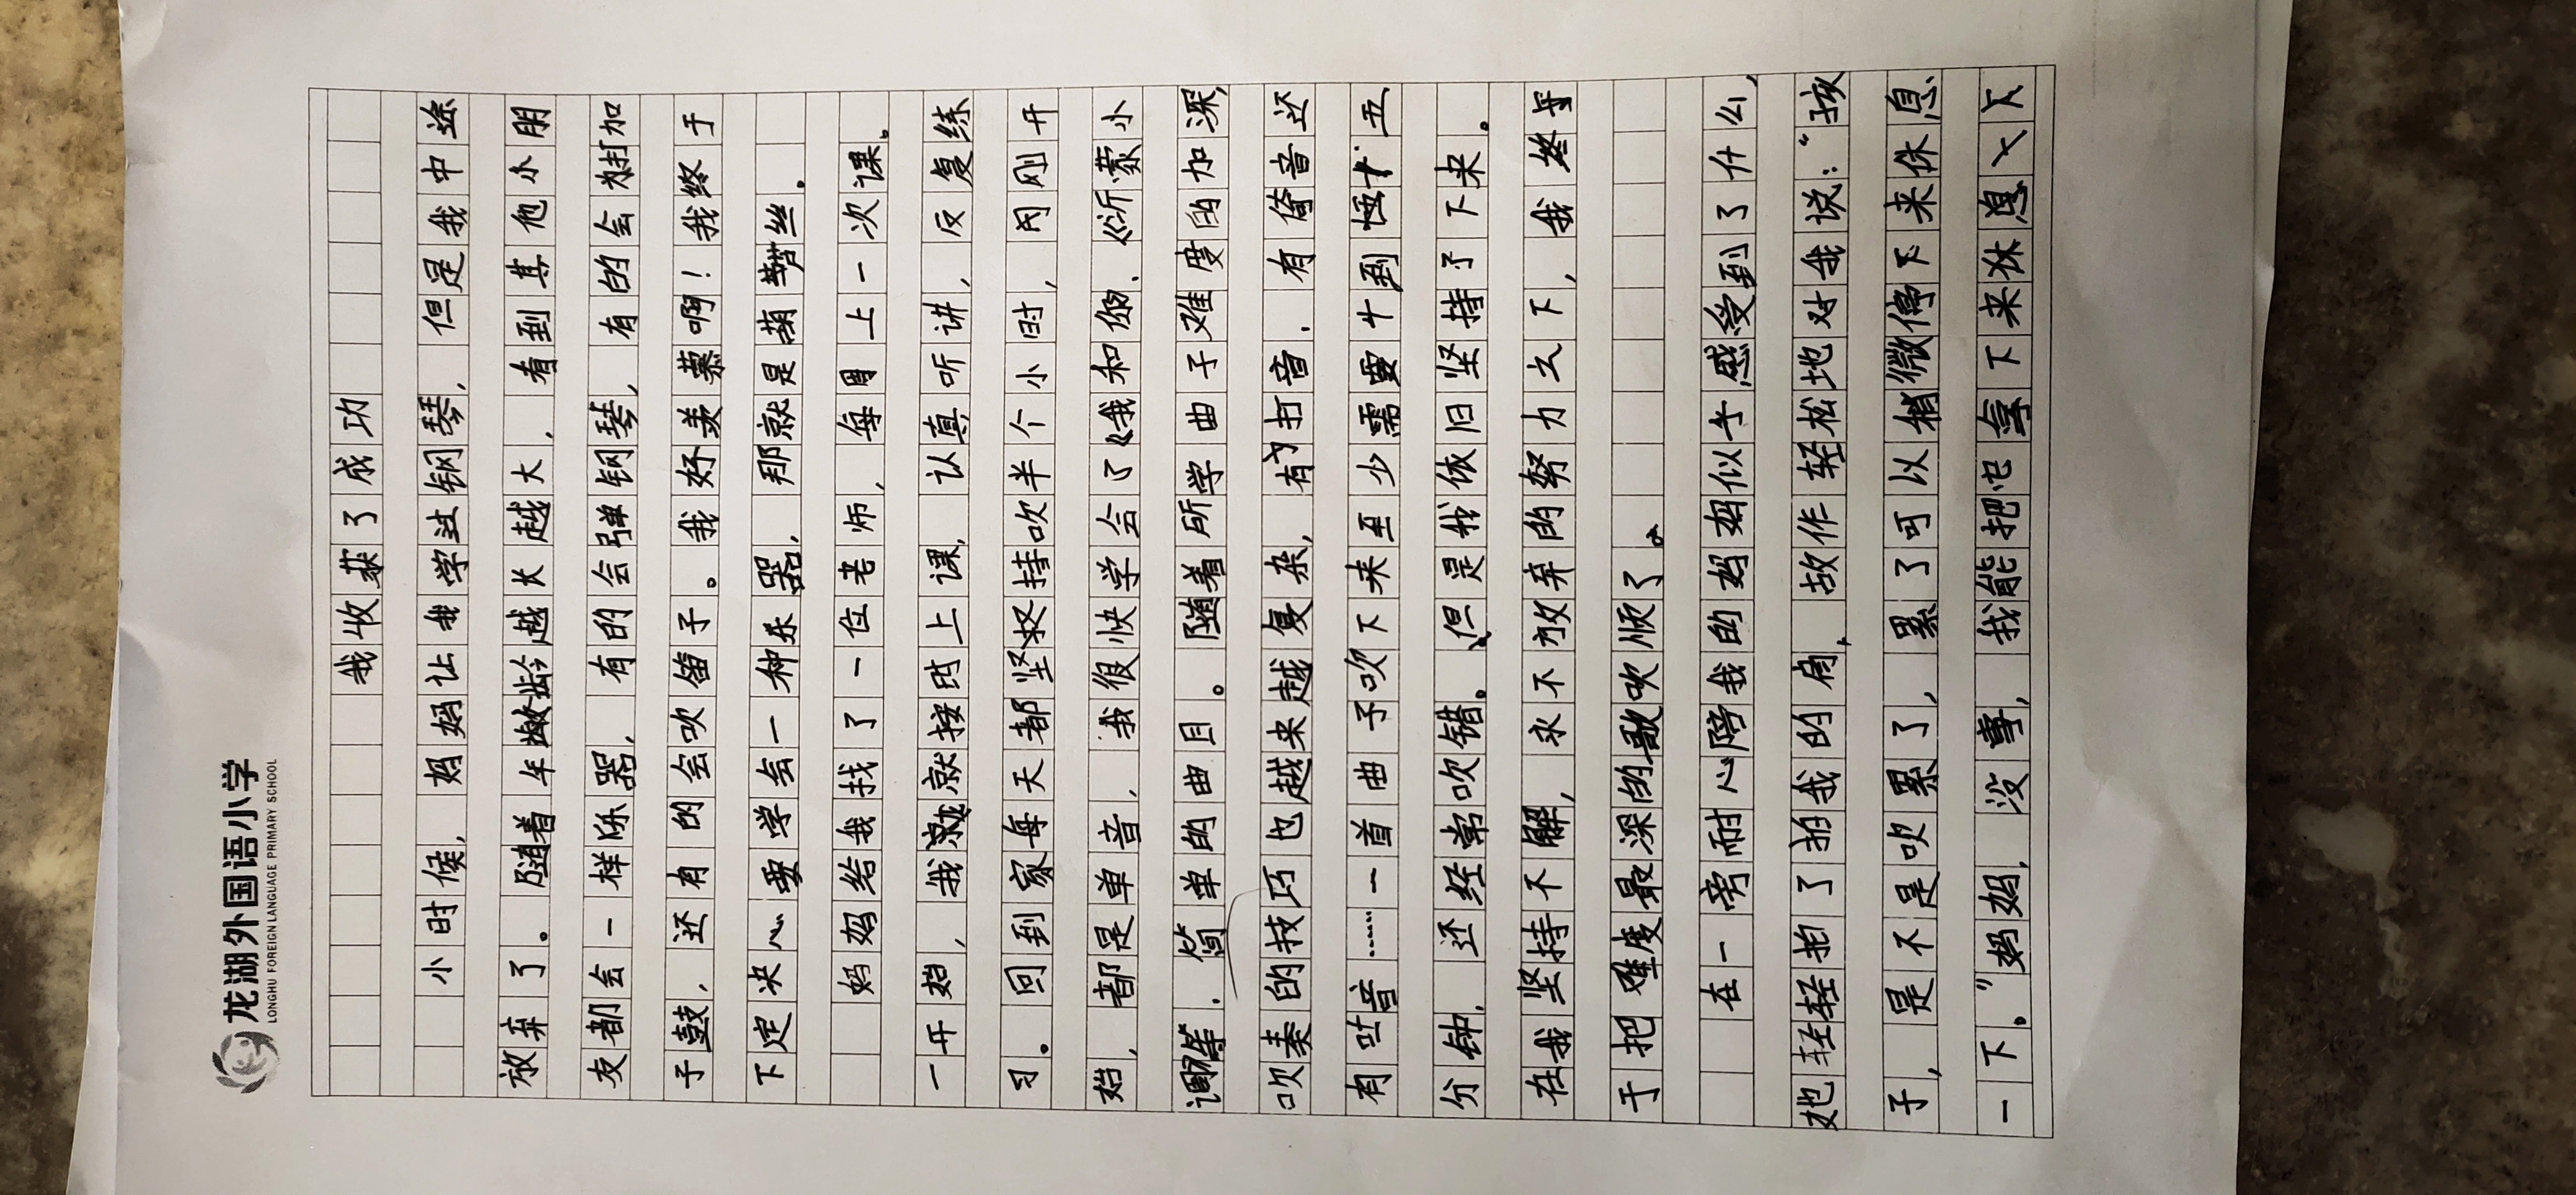 龙湖外国语小学
LONGHU FOREIGN LANGUAGE PRIMARY SCHOOL
我收获了成功
小时候,妈妈让我学过钢琴,但是我中途
放弃了。随着年龄越大越大,看到其他小朋
友都会一样乐器,有的会弹钢琴,有的会打架
子鼓,还有的会吹笛子。我好羡慕啊!我终于
下定决心要学会一种乐器,那就是葫芦丝。
妈妈给我找了一位老师,每周上一次课。
一开始,我就按时上课,认真听讲,反复练
习。回到家每天都坚持吹半个小时,因刚开
始,都是单音,我很快学会了《我和你、《沂蒙小
调等,简单的曲目。随着所学曲子难度的加深,
吹奏的技巧也越来越复杂,有打音,有倚音还
有吐音……一首曲子吹下来至少需要十到十五
分钟,还经常吹错。但是我依旧坚持了下来。
在我坚持不懈,永不放弃的努力之下,我终
于把难度最深的歌吹顺了。
在一旁耐心陪我的妈妈似乎感受到了什么,
她轻轻拍了拍我的肩,故作轻松地对我说:“孩
子,是不是吹累了,累了可以稍微停下来休息
一下。”妈妈,没事,我能把它拿下来休息一下